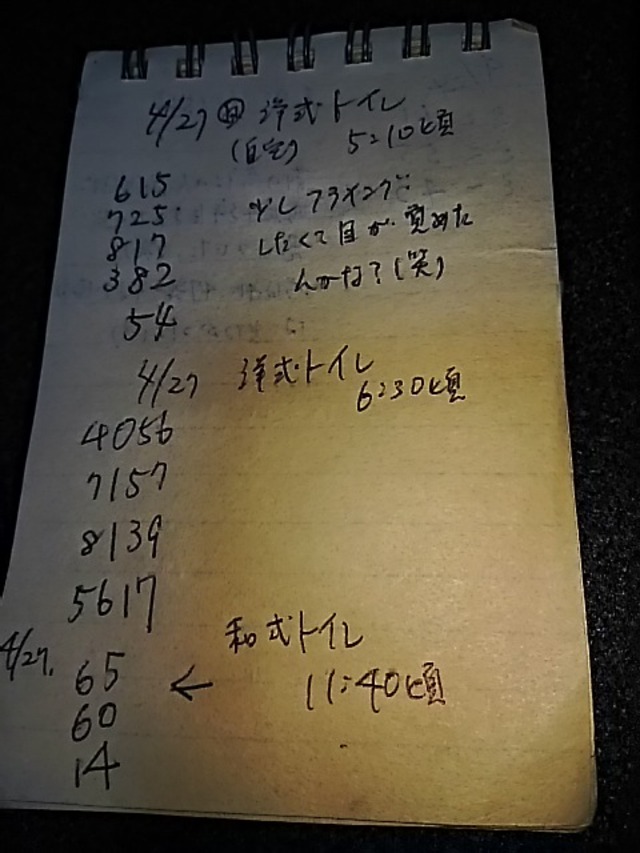 4/27 ㊐ 洋式トイレ
(自宅) 5:10頃
615
725 少しフライング
817 したくて目が覚めた
382 んかな?(笑)
54
4/27 洋式トイレ
6:30頃
4056
7157
8139
5617
和式トイレ
4/27. 65 ← 11:40頃
60
14